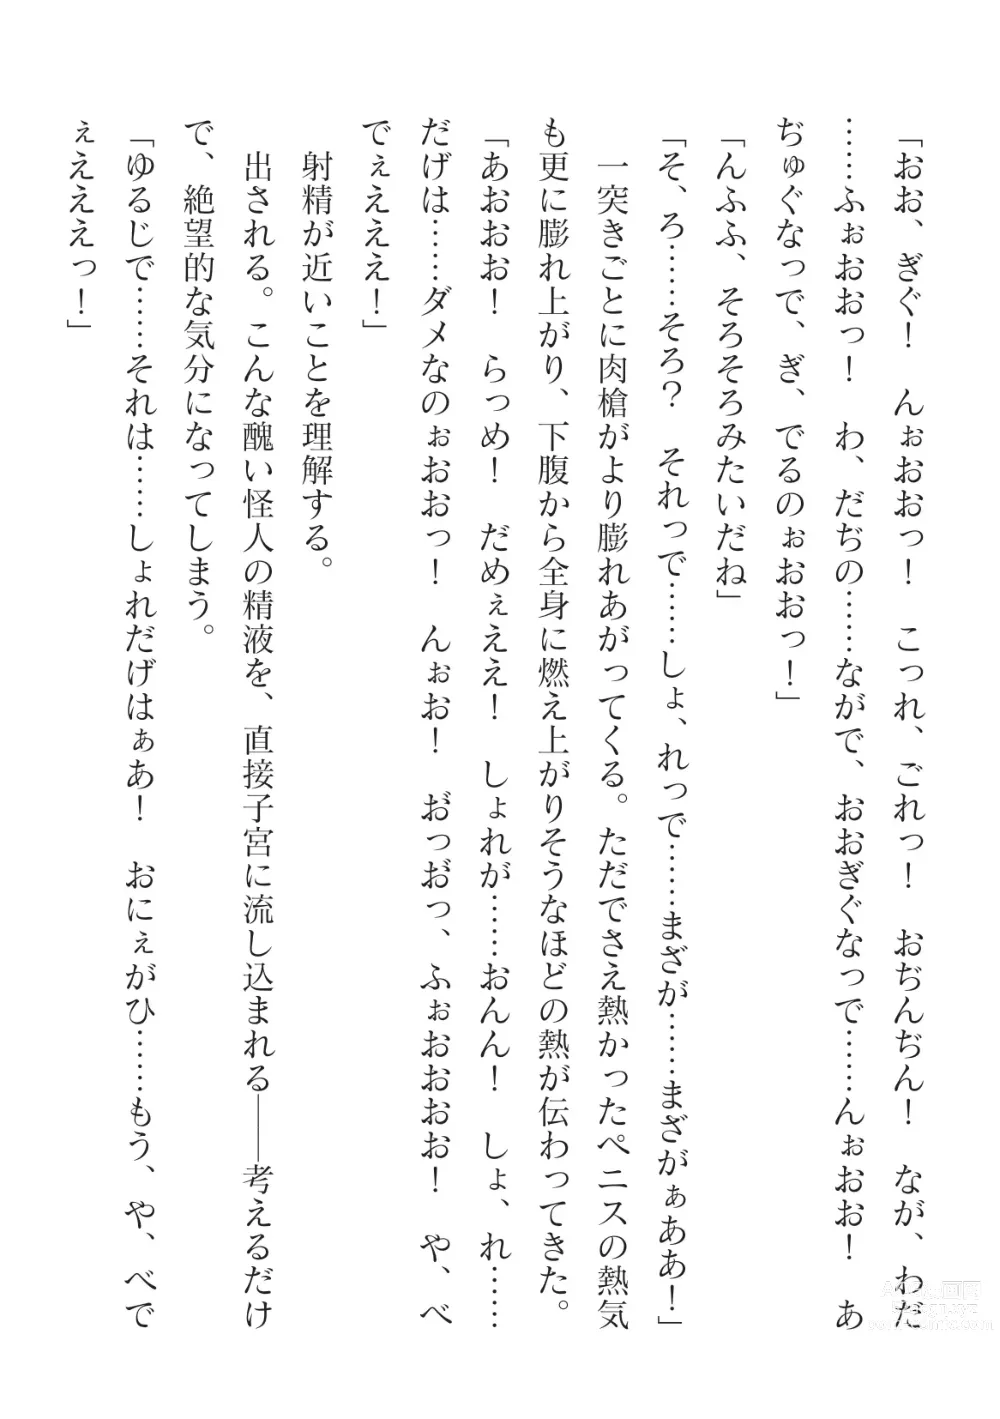 「おお、ぎぐ！　んぉおおっ！　こっれ、ごれっ！　おぢんぢん！　なが、わだ
……ふぉおおっ！　わ、だぢの……ながで、おおぎぐなっで……んぉおお！　あ
ぢゅぐなっで、ぎ、でるのぉおおっ！」
「んふふ、そろそろみたいだね」
「そ、ろ……そろ？　それっで……しょ、れっで……まざが……まざがぁああ！」
　一突きごとに肉槍がより膨れあがってくる。ただでさえ熱かったペニスの熱気
も更に膨れ上がり、下腹から全身に燃え上がりそうなほどの熱が伝わってきた。
「あおおお！　らっめ！　だめぇええ！　しょれが……おんん！　しょ、れ……
だげは……ダメなのぉおおっ！　んぉお！　お゛っお゛っ、ふぉおおおお！　や、べ
でぇえええ！」
　射精が近いことを理解する。
　出される。こんな醜い怪人の精液を、直接子宮に流し込まれる――考えるだけ
で、絶望的な気分になってしまう。
「ゆるじで……それは……しょれだげはぁあ！　おにぇがひ……もう、や、べで
ぇえええっ！」